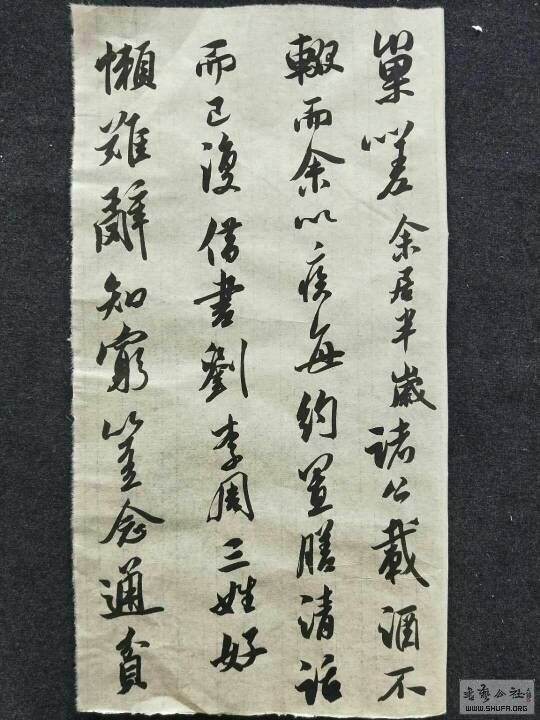 巢以
差余居半歲諸公載酒不
輟而余以疾每約置膳清話
而已復借書劉李周三姓好
懶難辭知窮豈念通貧
書藝公社
WWW.SHUFA.ORG